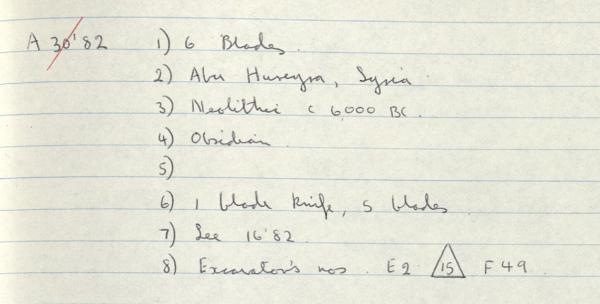 A 30'82 1) 6 Blades.
2) Abu Hureyra, Syria
3) Neolithic c 6,000 BC.
4) Obsidian
5)
6) 1 blade knife, 5 blades
7) See 16'82.
8) Excavator's nos. E2 15 F49.